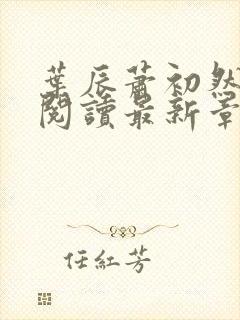 葉辰蕭初然
閱讀最新章
任紅芳